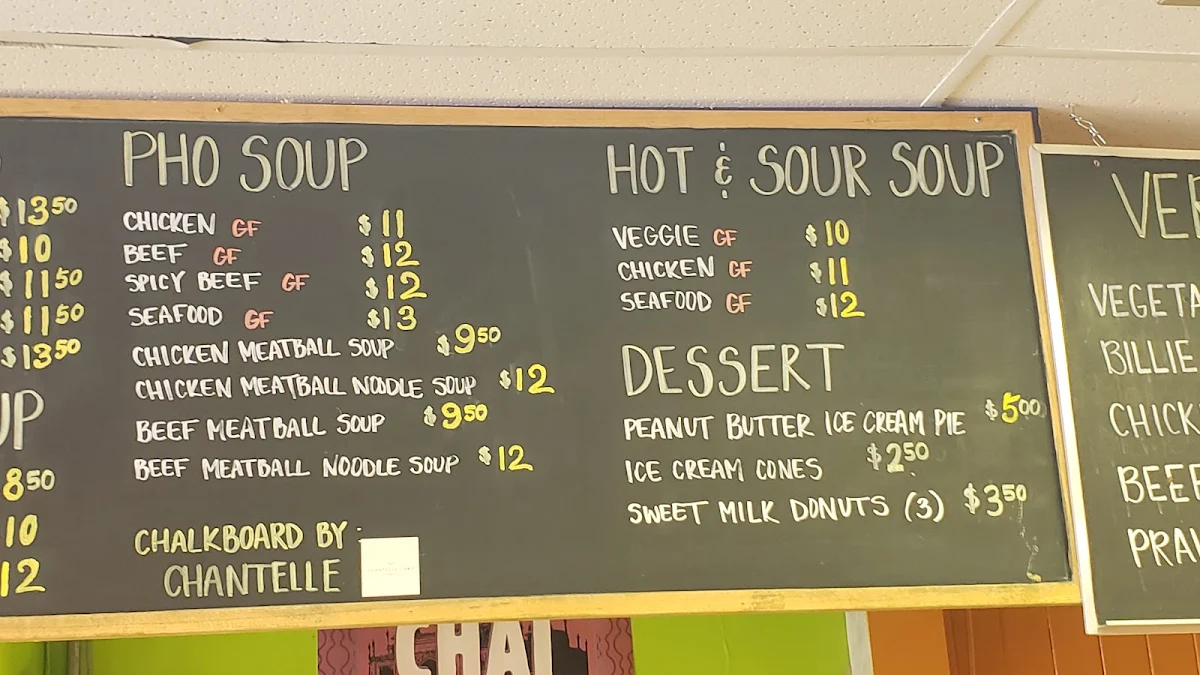 $13.50
$10
$11.50
$11.50
$13.50
8.50
10
12
PHO SOUP
CHICKEN GF $11
BEEF GF $12
SPICY BEEF GF $12
SEAFOOD GF $13
CHICKEN MEATBALL SOUP $9.50
CHICKEN MEATBALL NOODLE SOUP $12
BEEF MEATBALL SOUP $9.50
BEEF MEATBALL NOODLE SOUP $12
CHALKBOARD BY:
CHANTELLE
HOT & SOUR SOUP
VEGGIE GF $10
CHICKEN GF $11
SEAFOOD GF $12
DESSERT
PEANUT BUTTER ICE CREAM PIE $5.00
ICE CREAM CONES $2.50
SWEET MILK DONUTS (3) $3.50
BILLIE
CHAI